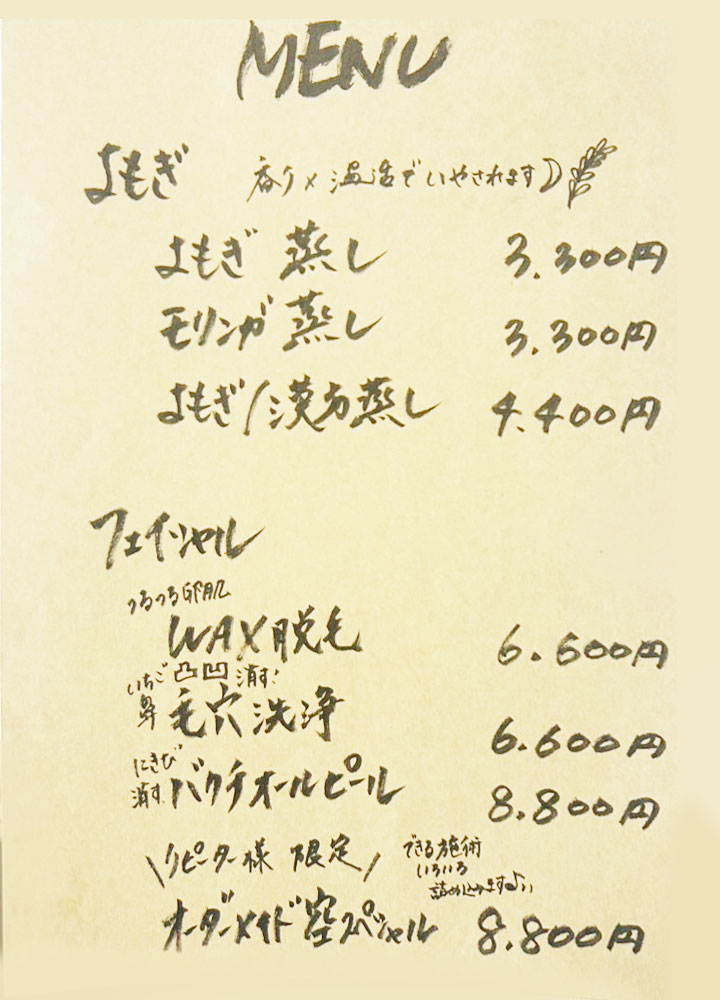 MENU
よもぎ 香り×温活でいやされます♪
よもぎ 蒸し 3.300円
モリンガ 蒸し 3.300円
よもぎ/漢方蒸し 4.400円
フェイシャル
つるつる卵肌
WAX脱毛 6.600円
いちご鼻 凸凹 消す!
毛穴洗浄 6.600円
にきび消す
バクチオールピール 8.800円
\リピーター様 限定/
できる施術
いろいろ
詰め込みます♪
オーダーメイド空スペシャル 8.800円